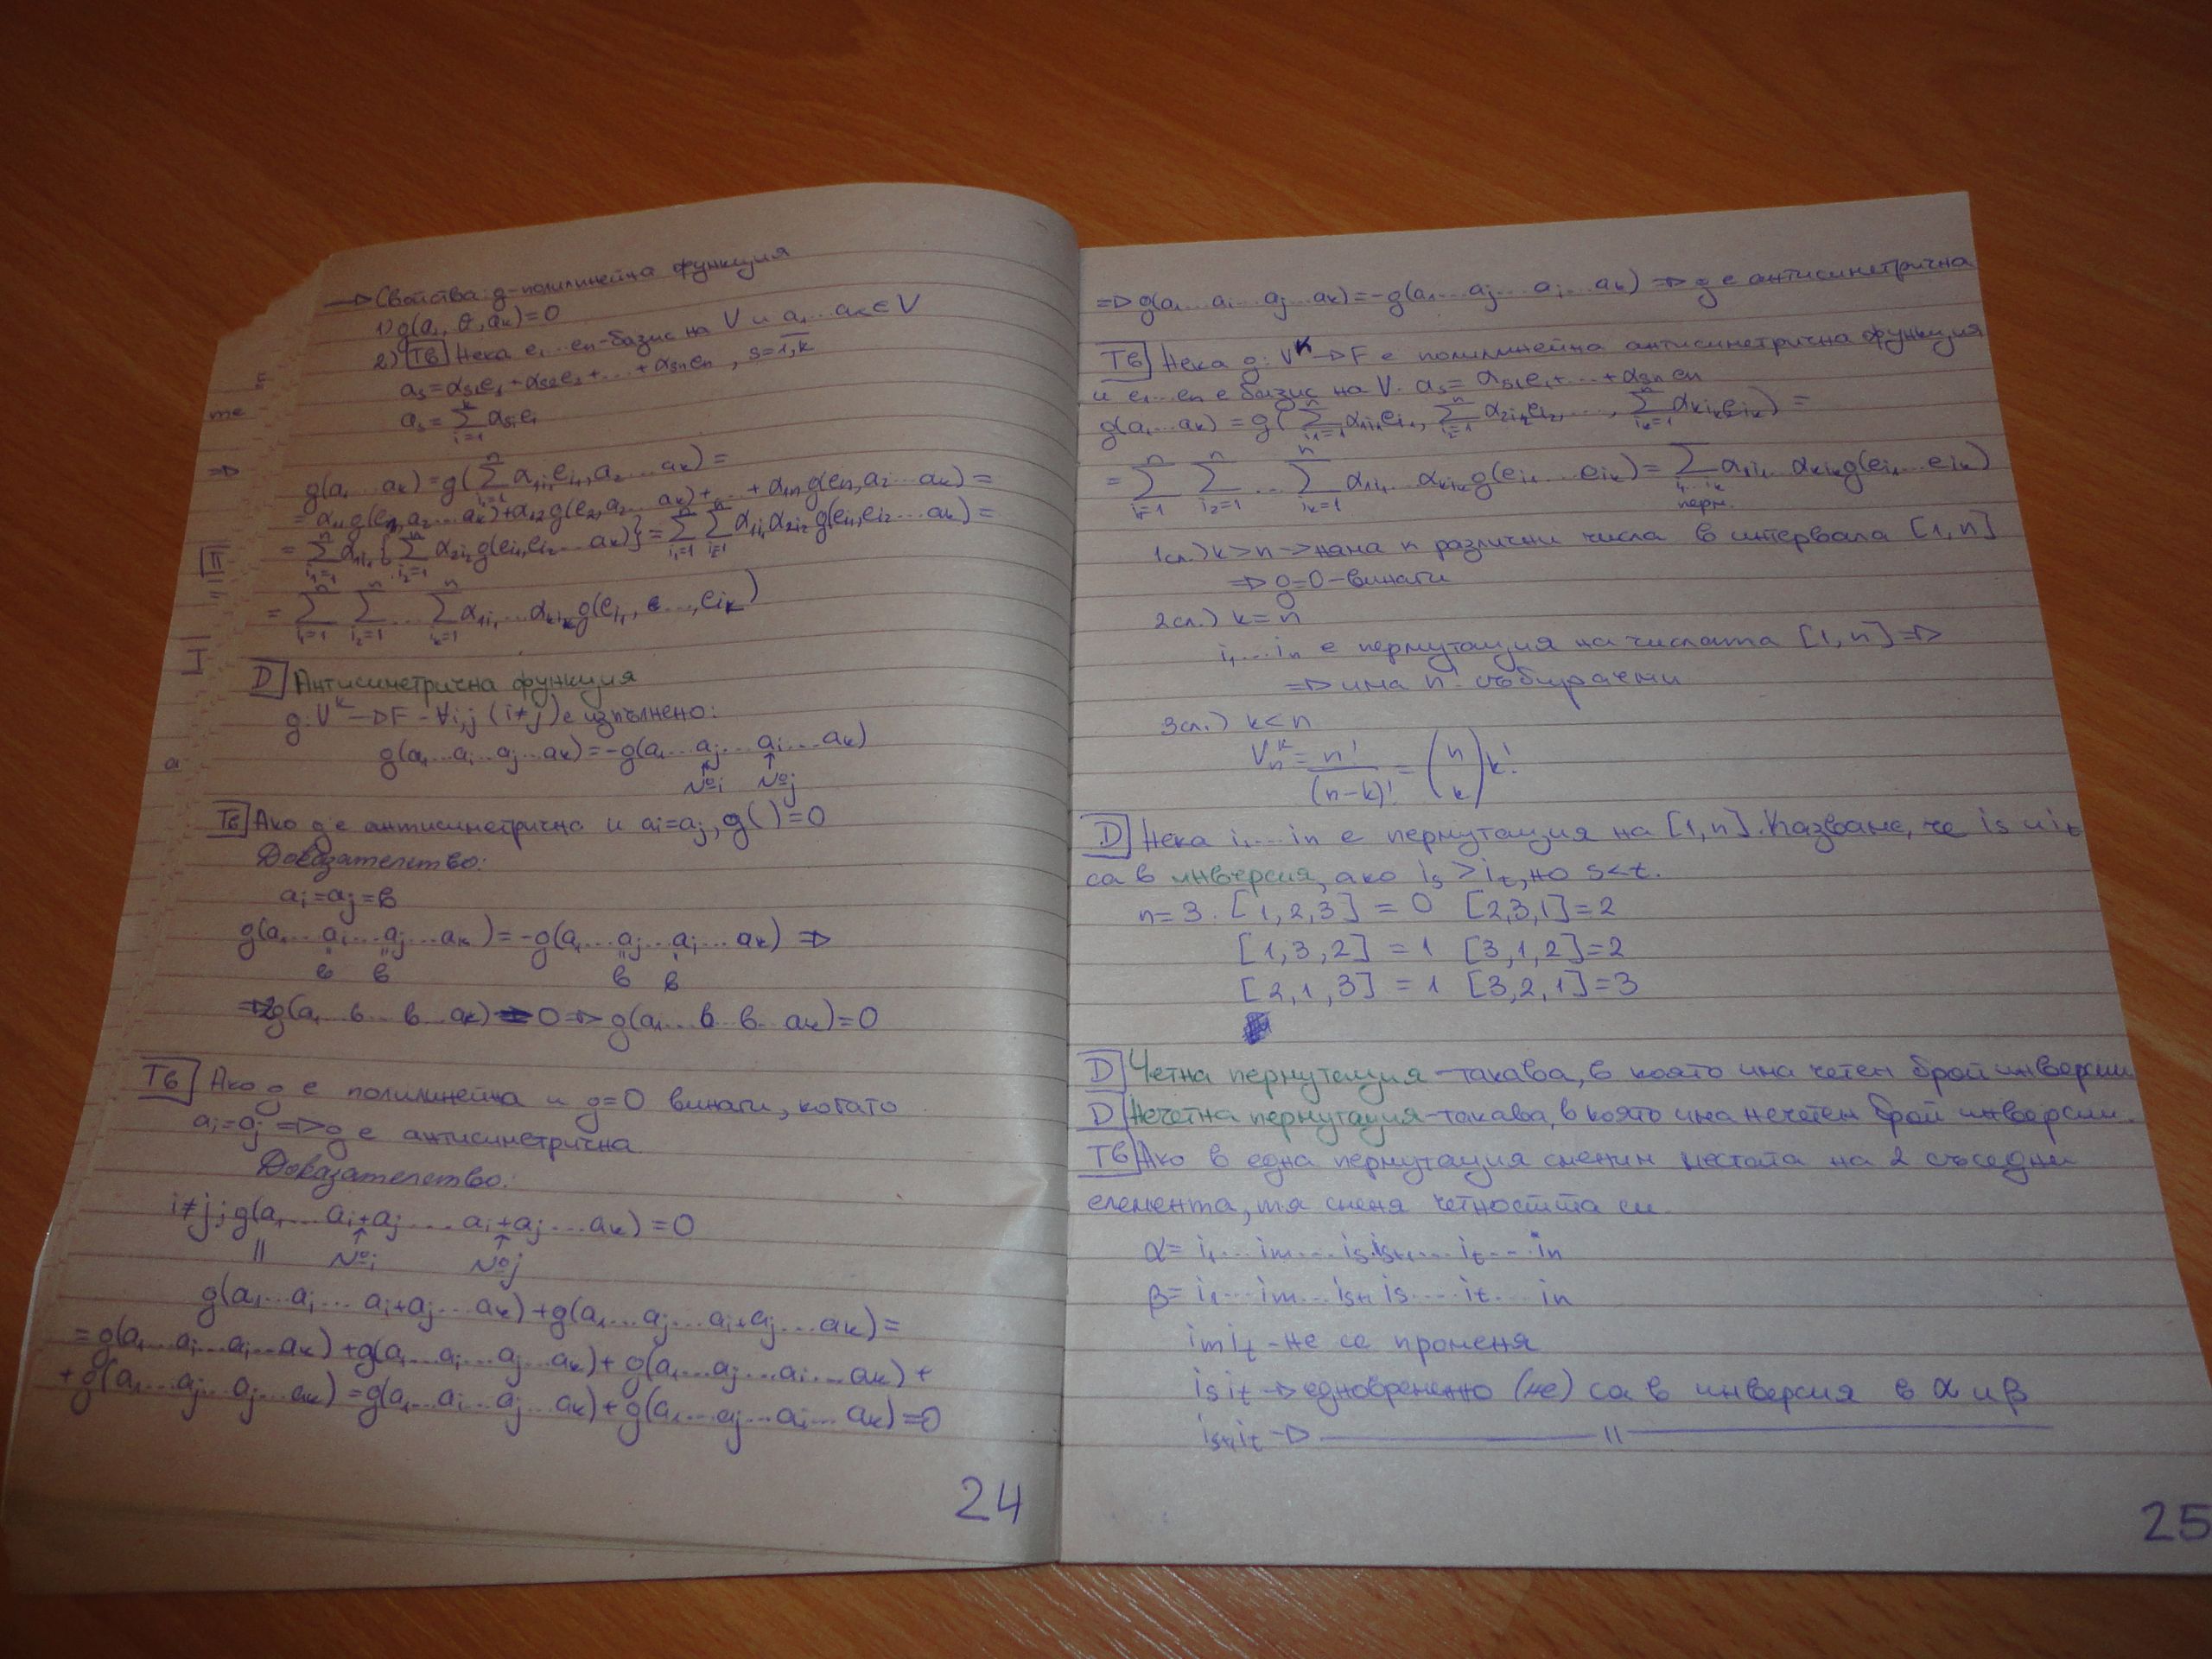 → Свойства: g-полилинейна функция
1) g(a₁, θ, aₖ)=0
2) Тв Нека e₁...eₙ-базис на V и a₁...aₖ∈V
aₛ=αₛ₁e₁+αₛ₂e₂+...+αₛₙeₙ, s=1,k
aₛ=∑ᵢ₌₁ᵏ αₛᵢeᵢ
g(a₁...aₖ)=g(∑ᵢ₁₌₁ⁿ α₁ᵢ₁eᵢ₁,a₂...aₖ)=
=α₁₁g(e₁,a₂...aₖ)+α₁₂g(e₂,a₂...aₖ)+...+α₁ₙg(eₙ,a₂...aₖ)=
=∑ᵢ₁₌₁ⁿ α₁ᵢ₁{∑ᵢ₂₌₁ⁿ α₂ᵢ₂g(eᵢ₁,eᵢ₂...aₖ)}=∑ᵢ₁₌₁ⁿ ∑ᵢ₌₁ⁿ α₁ᵢ₁α₂ᵢ₂g(eᵢ₁,eᵢ₂...aₖ)=
=∑ᵢ₌₁ⁿ ∑ᵢ₂₌₁ⁿ...∑ᵢₖ₌₁ⁿ α₁ᵢ₁...αₖᵢₖg(eᵢ₁,...,eᵢₖ)
D Антисиметрична функция
g:Vᵏ→F-∀i,j (i≠j) е изпълнено:
g(a₁...aᵢ...aⱼ...aₖ)=-g(a₁...aⱼ...aᵢ...aₖ)
↑ ↑
№i №j
Тв Ако g е антисиметрична и aᵢ=aⱼ, g()=0
Доказателство:
aᵢ=aⱼ=в
g(a₁...aᵢ...aⱼ...aₖ)=-g(a₁...aⱼ...aᵢ...aₖ) ⇒
в в в в
⇒2g(a₁ в... в aₖ)=0⇒g(a₁...в в...aₖ)=0
Тв Ако g е полилинейна и g=0 винаги, когато
aᵢ=aⱼ ⇒g е антисиметрична
Доказателство:
i≠j; g(a₁...aᵢ+aⱼ...aᵢ+aⱼ...aₖ)=0
|| ↑ ↑
№i №j
g(a₁...aᵢ...aᵢ+aⱼ...aₖ)+g(a₁...aⱼ...aᵢ+aⱼ...aₖ)=
=g(a₁...aᵢ...aᵢ...aₖ)+g(a₁...aᵢ...aⱼ...aₖ)+g(a₁...aⱼ...aᵢ...aₖ)+
+g(a₁...aⱼ...aⱼ...aₖ)=g(a₁...aᵢ...aⱼ...aₖ)+g(a₁...aⱼ...aᵢ...aₖ)=0
24
me
⇒
II
I
a
⇒g(a₁...aᵢ...aⱼ...aₖ)=-g(a₁...aⱼ...aᵢ...aₖ) ⇒ g е антисиметрична
Тв Нека g:Vᵏ→F е полилинейна антисиметрична функция
и e₁...eₙ е базис на V. aₛ=αₛ₁e₁+...+αₛₙeₙ
g(a₁...aₖ)=g(∑ᵢ₁₌₁ⁿ α₁ᵢ₁eᵢ₁,∑ᵢ₂₌₁ⁿ α₂ᵢ₂eᵢ₂,...,∑ᵢₖ₌₁ⁿ αₖᵢₖeᵢₖ)=
=∑ᵢ₌₁ⁿ ∑ᵢ₂₌₁ⁿ...∑ᵢₖ₌₁ⁿ α₁ᵢ₁...αₖᵢₖg(eᵢ₁...eᵢₖ)=∑ α₁ᵢ₁ αₖᵢₖg(eᵢ₁...eᵢₖ)
i₁...iₖ
перм.
1сл.) k>n→няма n различни числа в интервала [1,n]
⇒ g=0-винаги
2сл.) k=n
i₁...iₙ е пермутация на числата [1,n] ⇒
⇒ има n! събираеми
3сл.) k<n
Vₙᵏ=n!/(n-k)!=(n k)k!
D Нека i₁...iₙ е пермутация на [1,n]. Казваме, че iₛ и iₜ
са в инверсия, ако iₛ>iₜ, но s<t.
n=3. [1,2,3]=0 [2,3,1]=2
[1,3,2]=1 [3,1,2]=2
[2,1,3]=1 [3,2,1]=3
D Четна пермутация-такава, в която има четен брой инверсии
D Нечетна пермутация-такава, в която има нечетен брой инверсии.
Тв Ако в една пермутация сменим местата на 2 съседни
елемента, тя сменя четността си.
α=i₁...iₘ...iₛiₛ₊₁...iₜ...iₙ
β=i₁...iₘ...iₛ₊₁iₛ...iₜ...iₙ
iₘiₜ-не се променя
iₛiₜ→едновременно (не) са в инверсия в α и β
iₛ₊₁iₜ→———||———
25